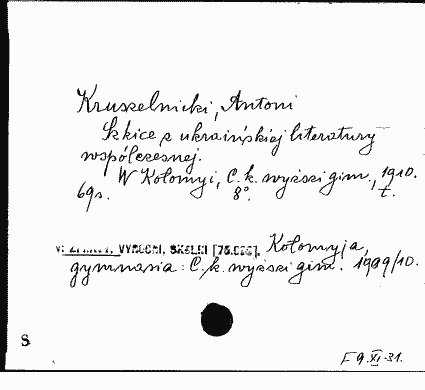 Kruszelnicki, Antoni
Szkice z ukraińskiej literatury
współczesnej.
W Kołomyi, C. k. wyższi gim., 1910.
69 s. 8°. t.
VYROČNÍ, [76.
Kołomyja,
gymnasia: C. k. wyższi gim. 1909/10.
S
F 9. XI. 31.